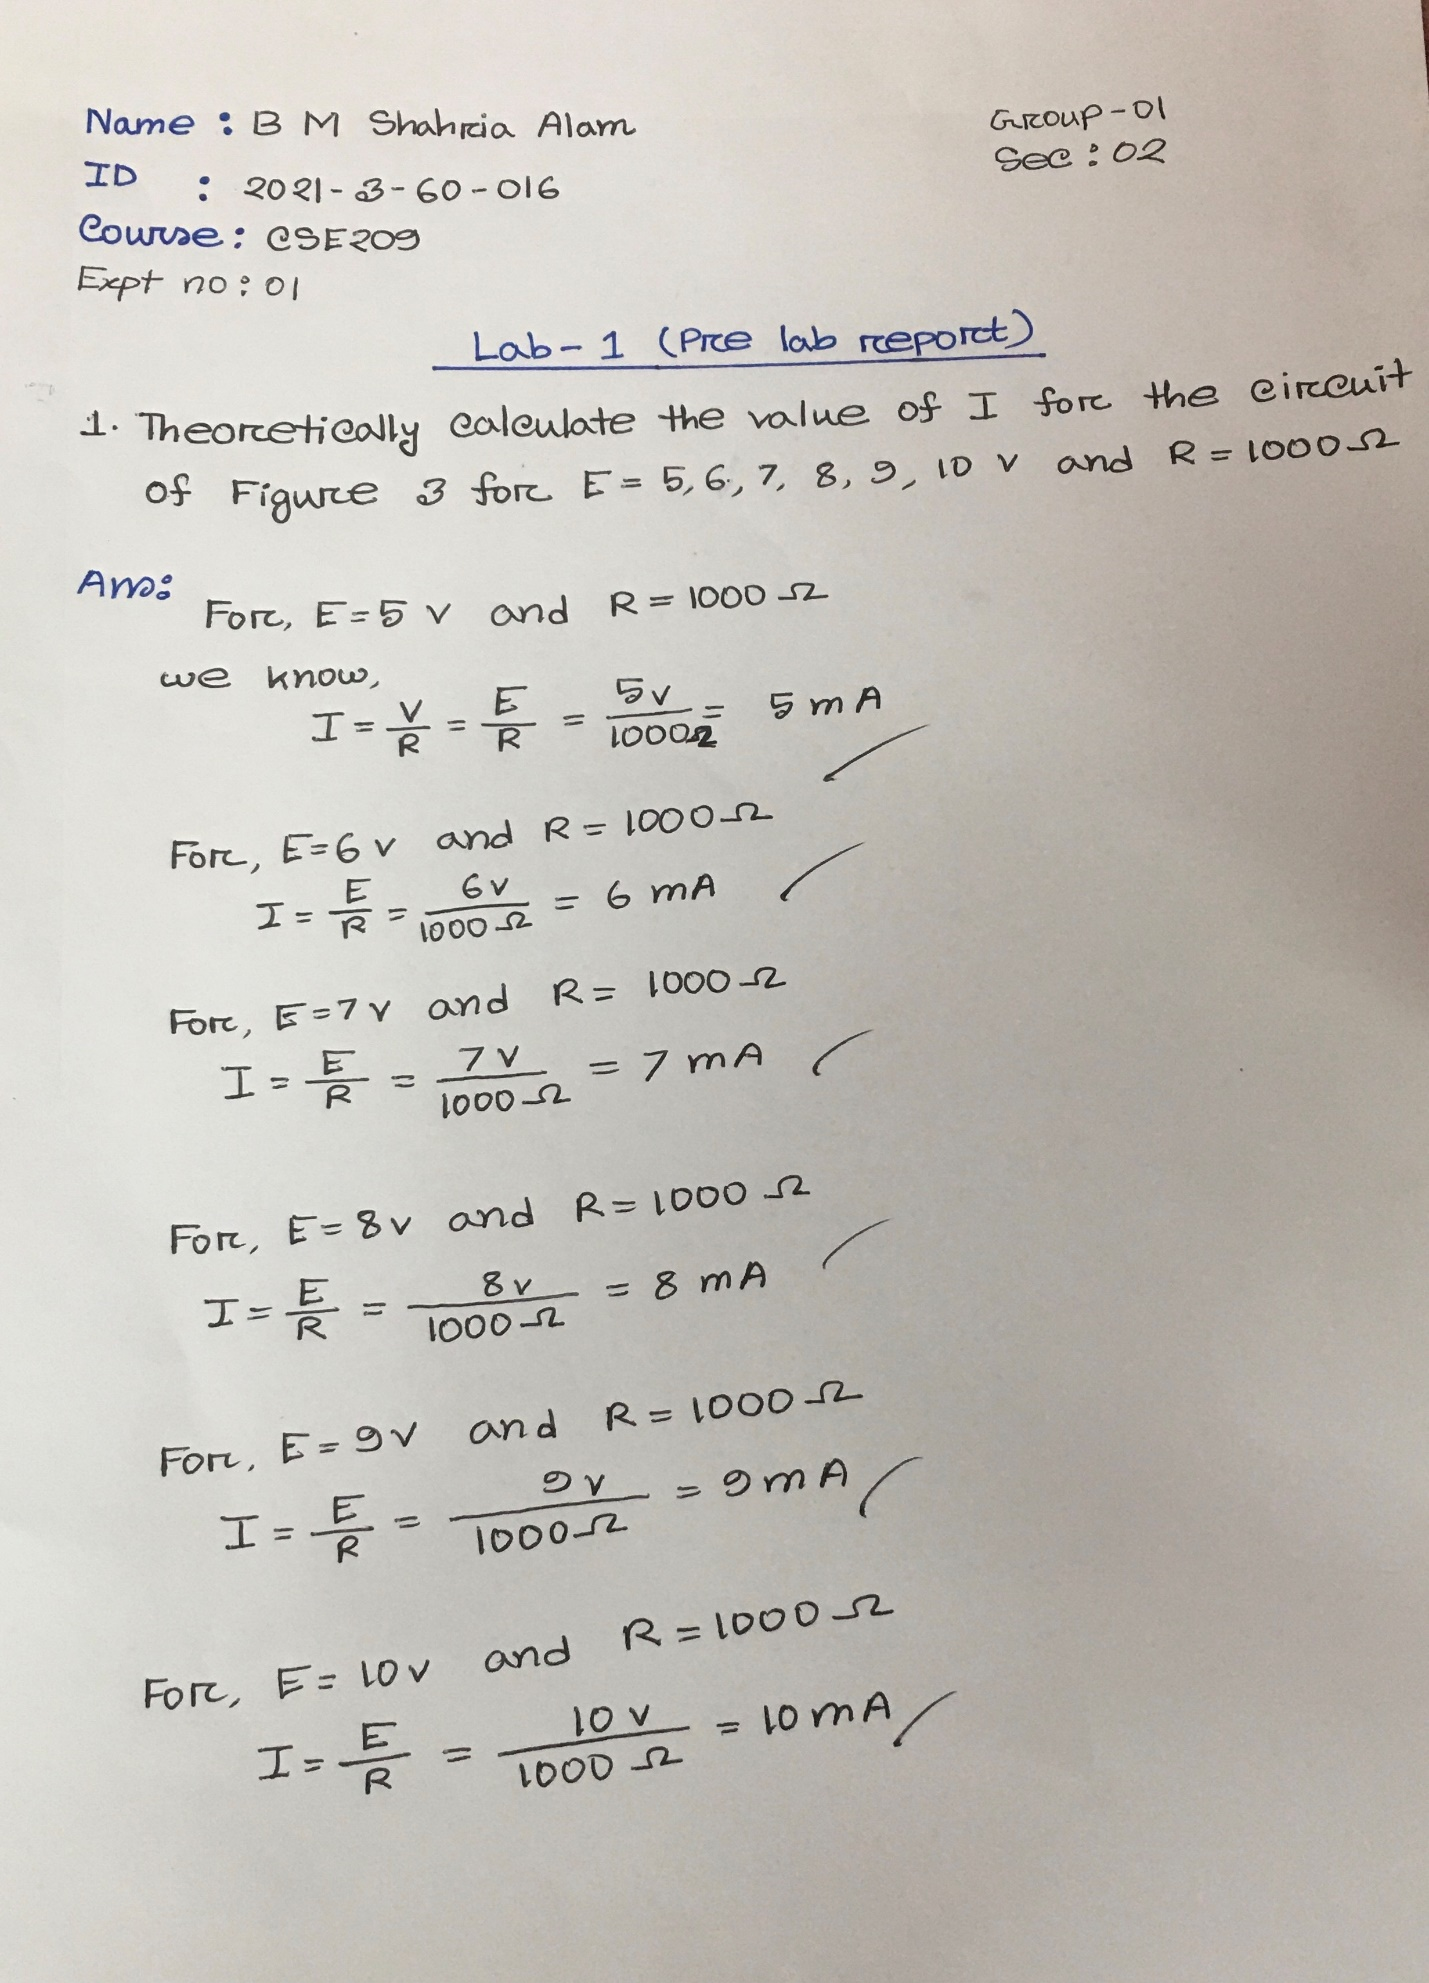 Name : B M Shahria Alam
Group-01
ID : 2021-3-60-016
Sec : 02
Course : CSE209
Expt no : 01
Lab-1 (Pre lab report)
1. Theoretically calculate the value of I for the circuit
of Figure 3 for E = 5, 6, 7, 8, 9, 10 v and R = 1000 Ω
Ans:
For, E = 5 v and R = 1000 Ω
we know,
I = V/R = E/R = 5v/1000Ω = 5 mA
For, E = 6 v and R = 1000 Ω
I = E/R = 6v/1000 Ω = 6 mA
For, E = 7 v and R = 1000 Ω
I = E/R = 7 v/1000 Ω = 7 mA
For, E = 8v and R = 1000 Ω
I = E/R = 8 v/1000 Ω = 8 mA
For, E = 9v and R = 1000 Ω
I = E/R = 9 v/1000 Ω = 9 mA
For, E = 10 v and R = 1000 Ω
I = E/R = 10 v/1000 Ω = 10 mA